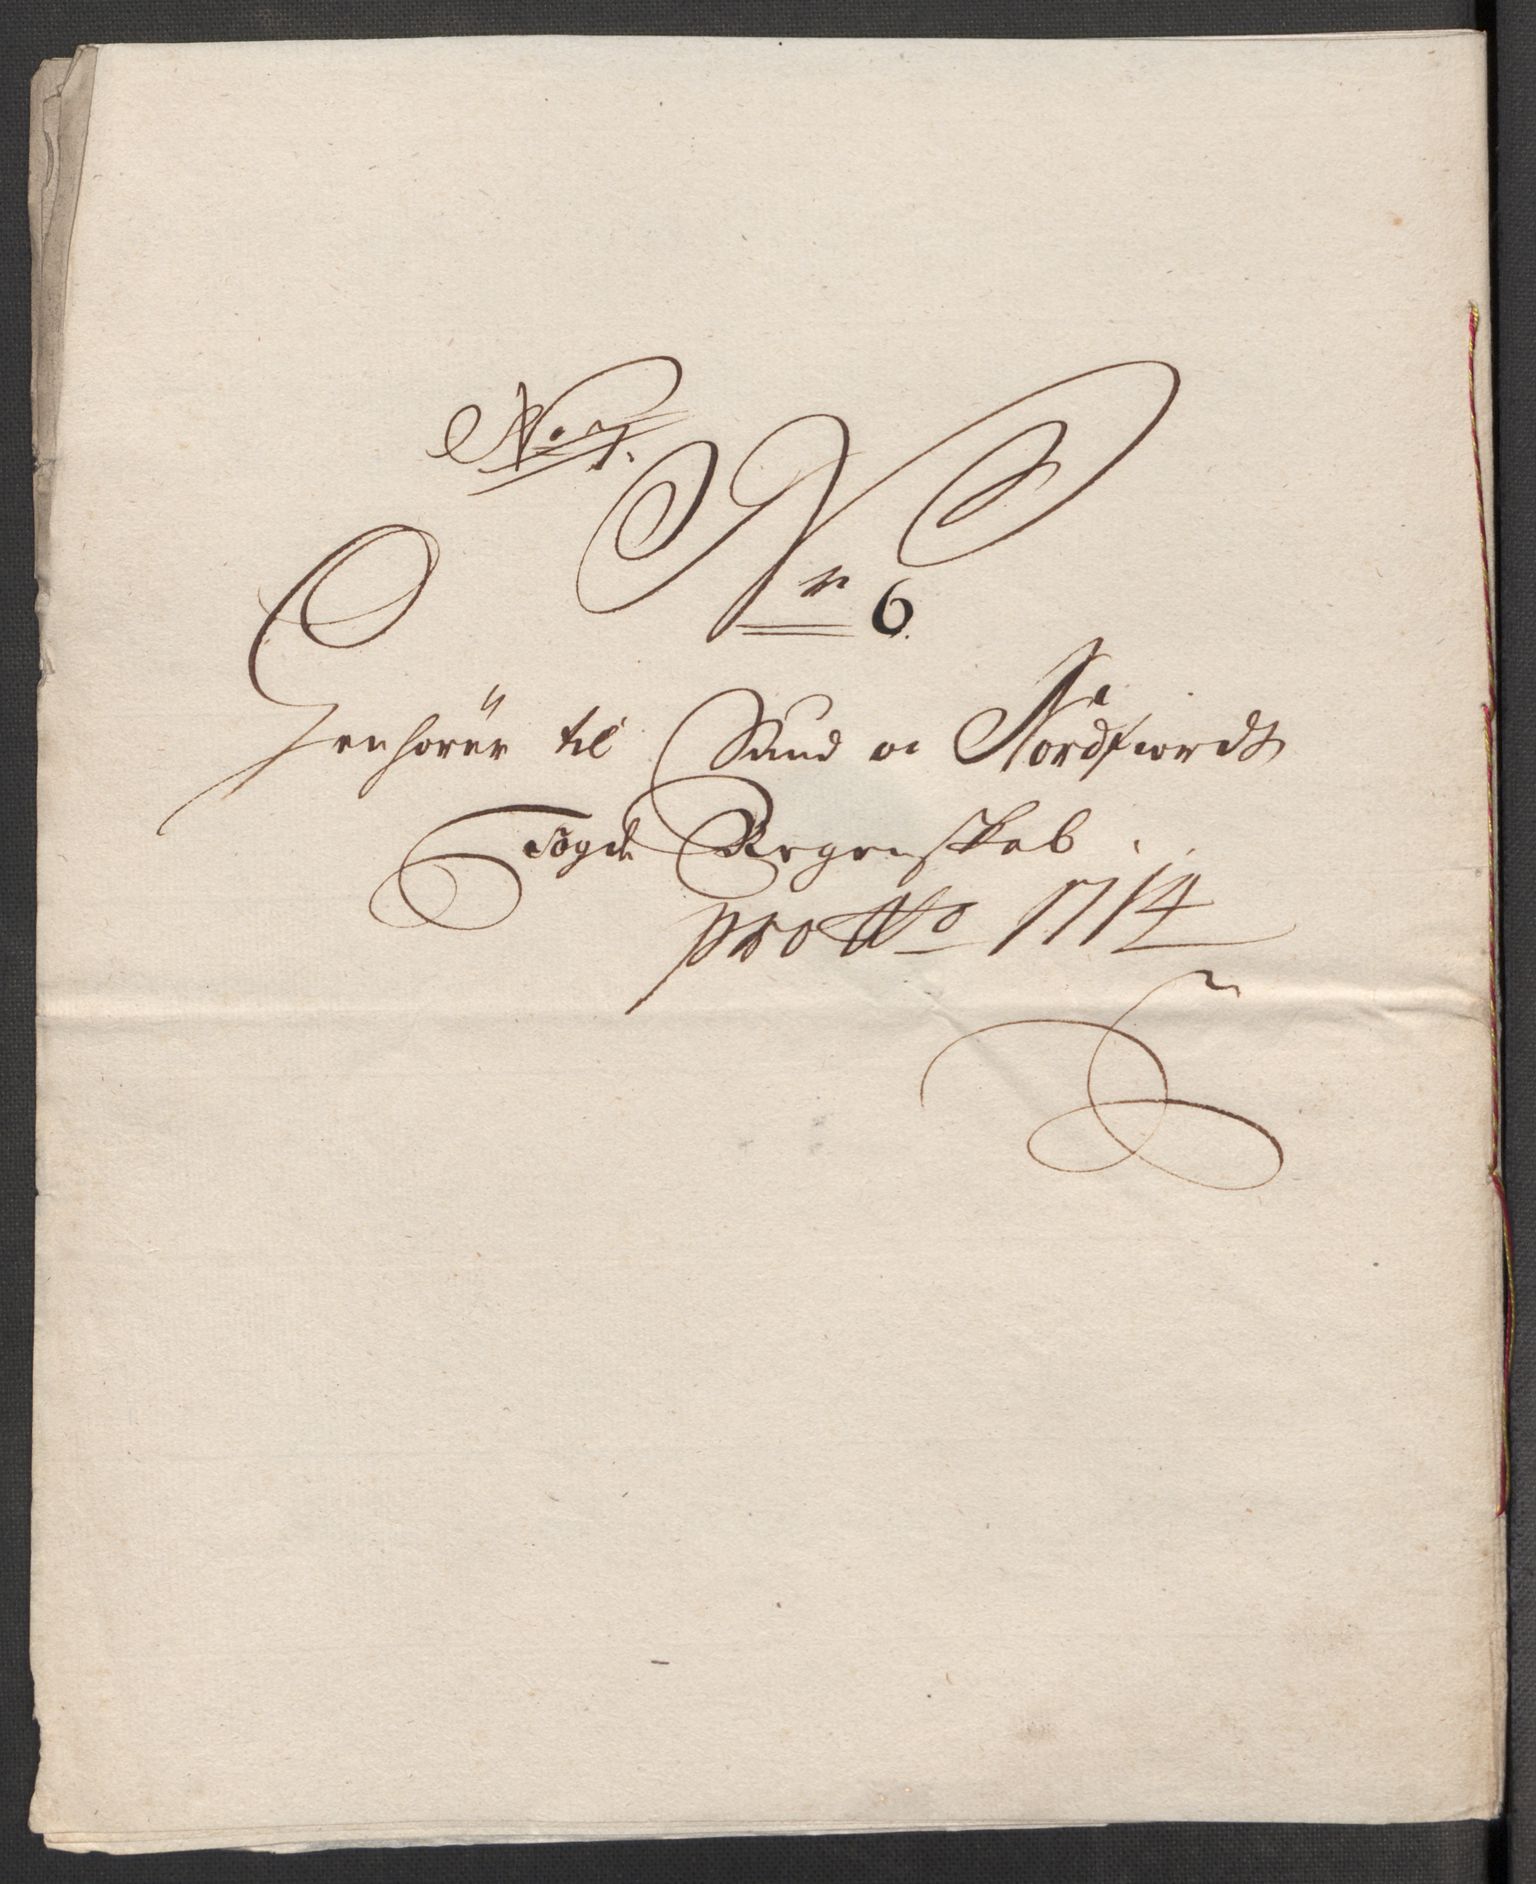 No 7.
Nr 6.
Henhörer til Sund og Nordfiords
Fogderi Regenskab.
pro Ao 1714